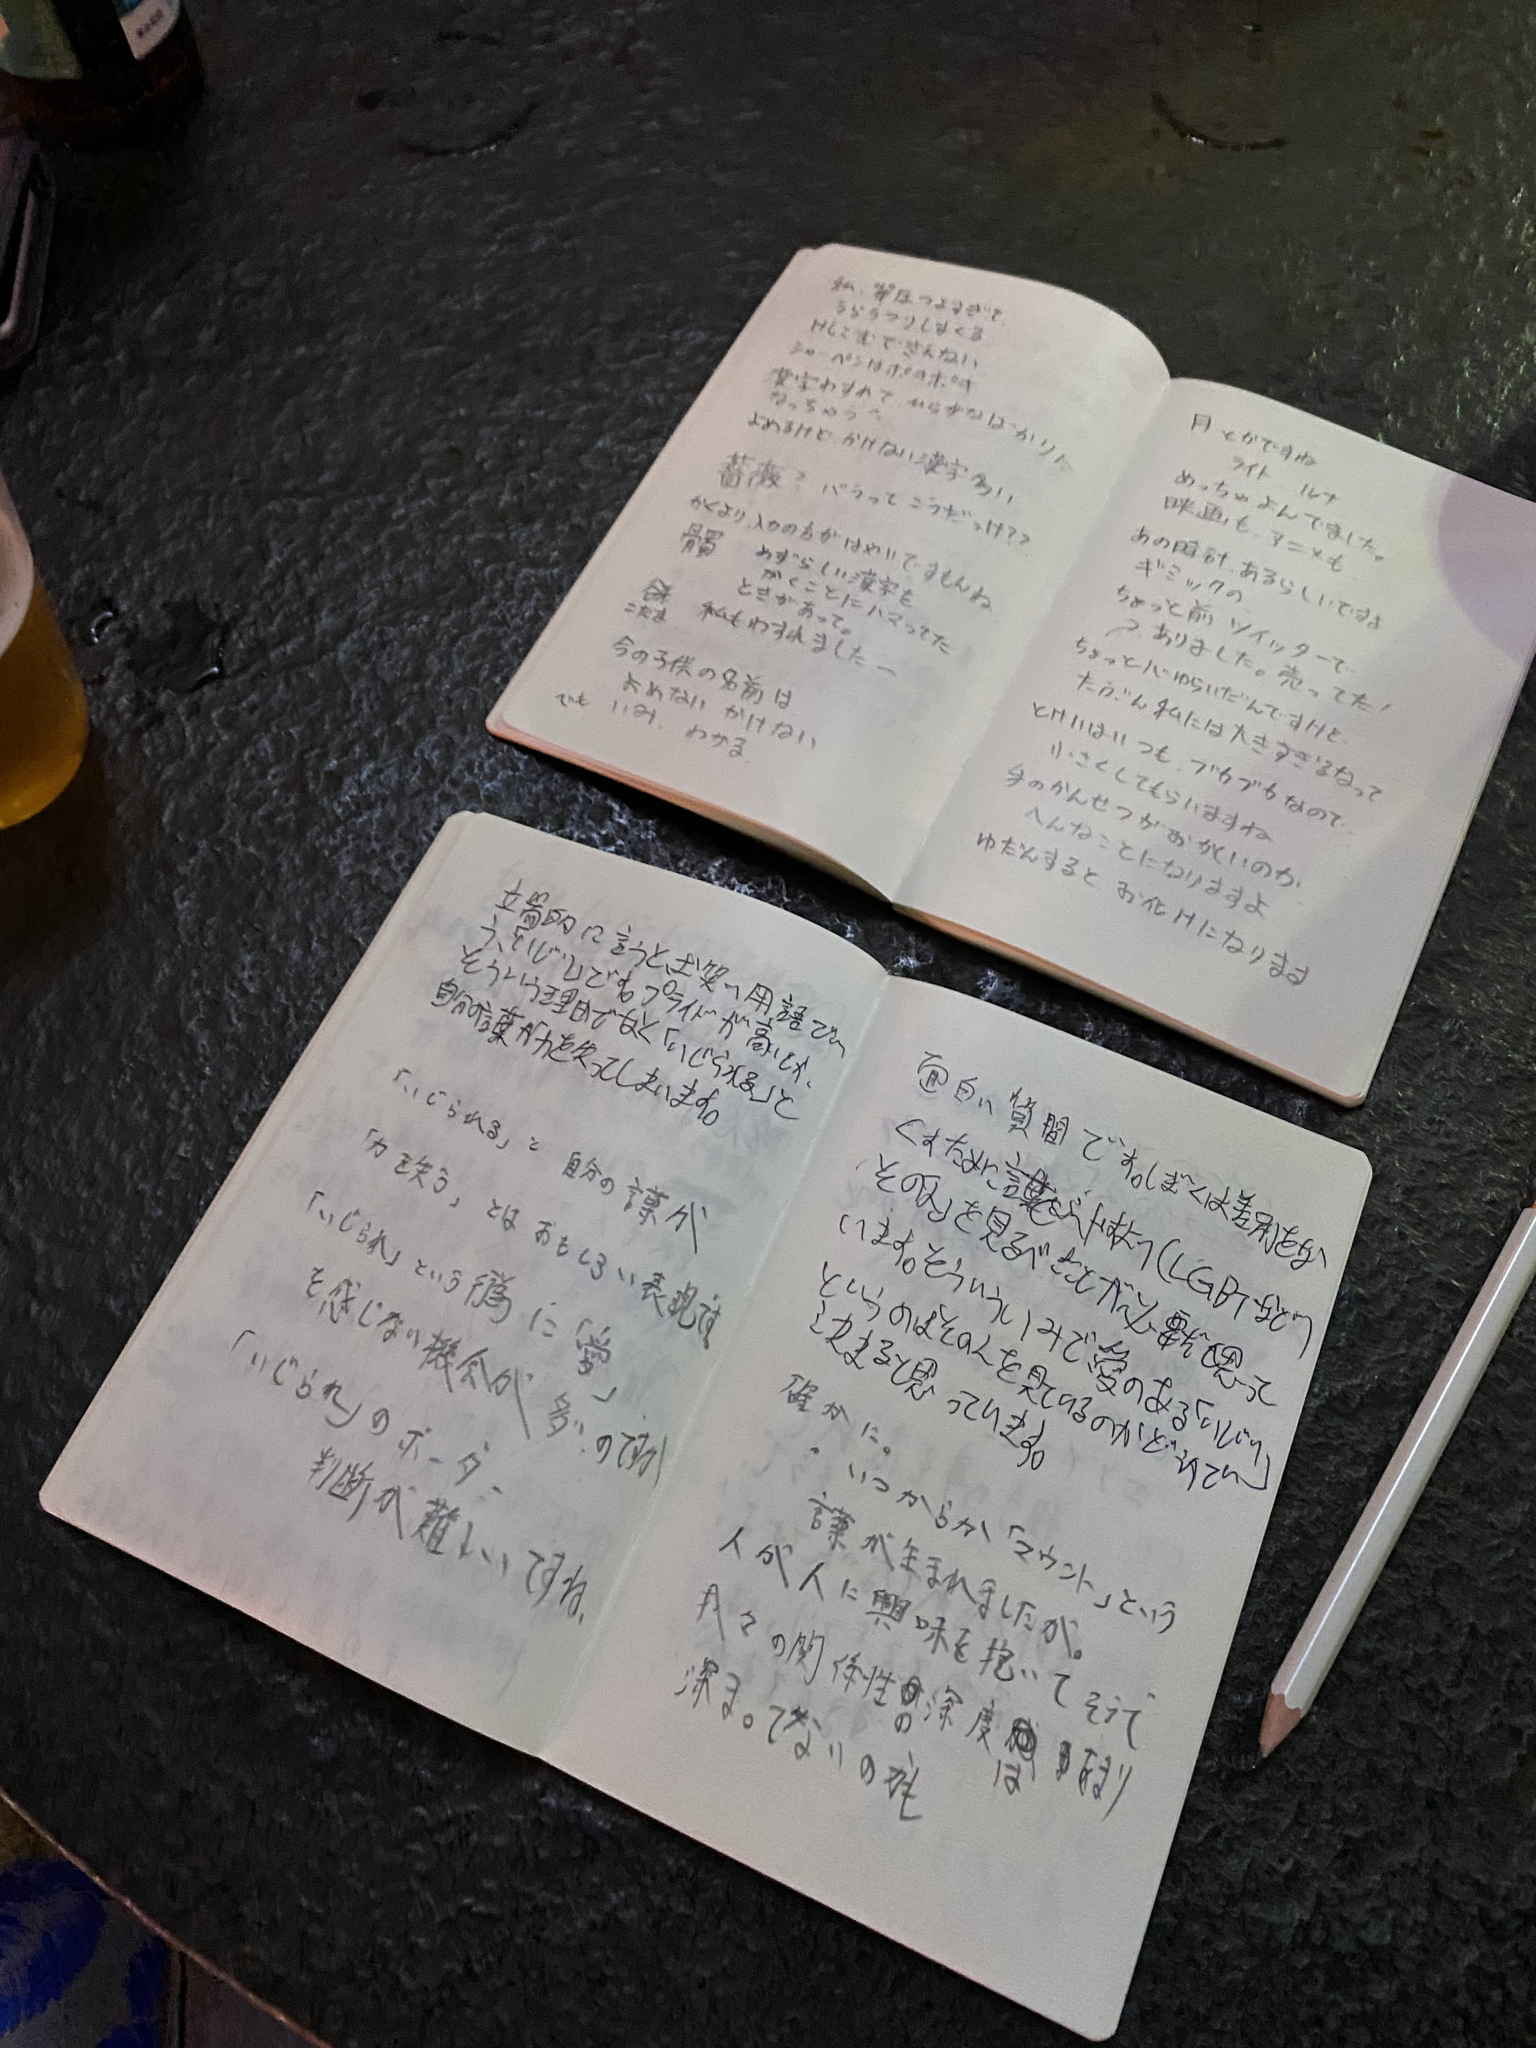 私、筆圧つよすぎて、
うらうつりしまくる
けしごむできえない
シャーペンはポキポキ
漢字わすれて、ひらがなばかりに
なっちゃう
よめるけど、かけない漢字多い
薔薇? バラってこうだっけ??
かくより、入力の方がはやいですもんね
髑 めずらしい漢字を
かくことにハマってた
ときがあって。
こだま 私もわすれましたー
今の子供の名前は
よめない かけない
でも いみ、わかる
月 とかですね
ライト ルナ
めっちゃよんでました。
映画も、アニメも
あの時計、あるらしいですよ
ギミックの、
ちょっと前 ツイッターで
ありました。売ってた!
ちょっと心ゆらいだんですけど、
たぶん私には大きすぎるなって
とけいはいつも、ブカブカなので、
小さくしてもらいますね
手のかんせつがおかしいのか、
へんなことになりますよ
ゆだんすると お化けになります
的に言うと、お笑い用語でいう
「いじり」でもプライドが高いとか、
そういう理由でなく「いじられる」と
自分の言葉が力を失ってしまいます。
「いじられる」と 自分の言葉が
「力を失う」とは おもしろい表現です
「いじられ」という行為に「愛」
を感じない機会が多いのですが
「いじられ」のボーダー、
判断が難しいですね、
面白い質問です。ぼくは差別をな
くすために言葉を(LGBTなど)
その人を見ることが必要だと思って
います。そういういみで愛のある「いじり」
というのはその人を見ているのかどうかで
決まると思っています。
確かに。
・いつからか「マウント」という
言葉が生まれましたが。
人が人に興味を抱いて そうして
月々の関係性の深度は
深ま。てないのかも